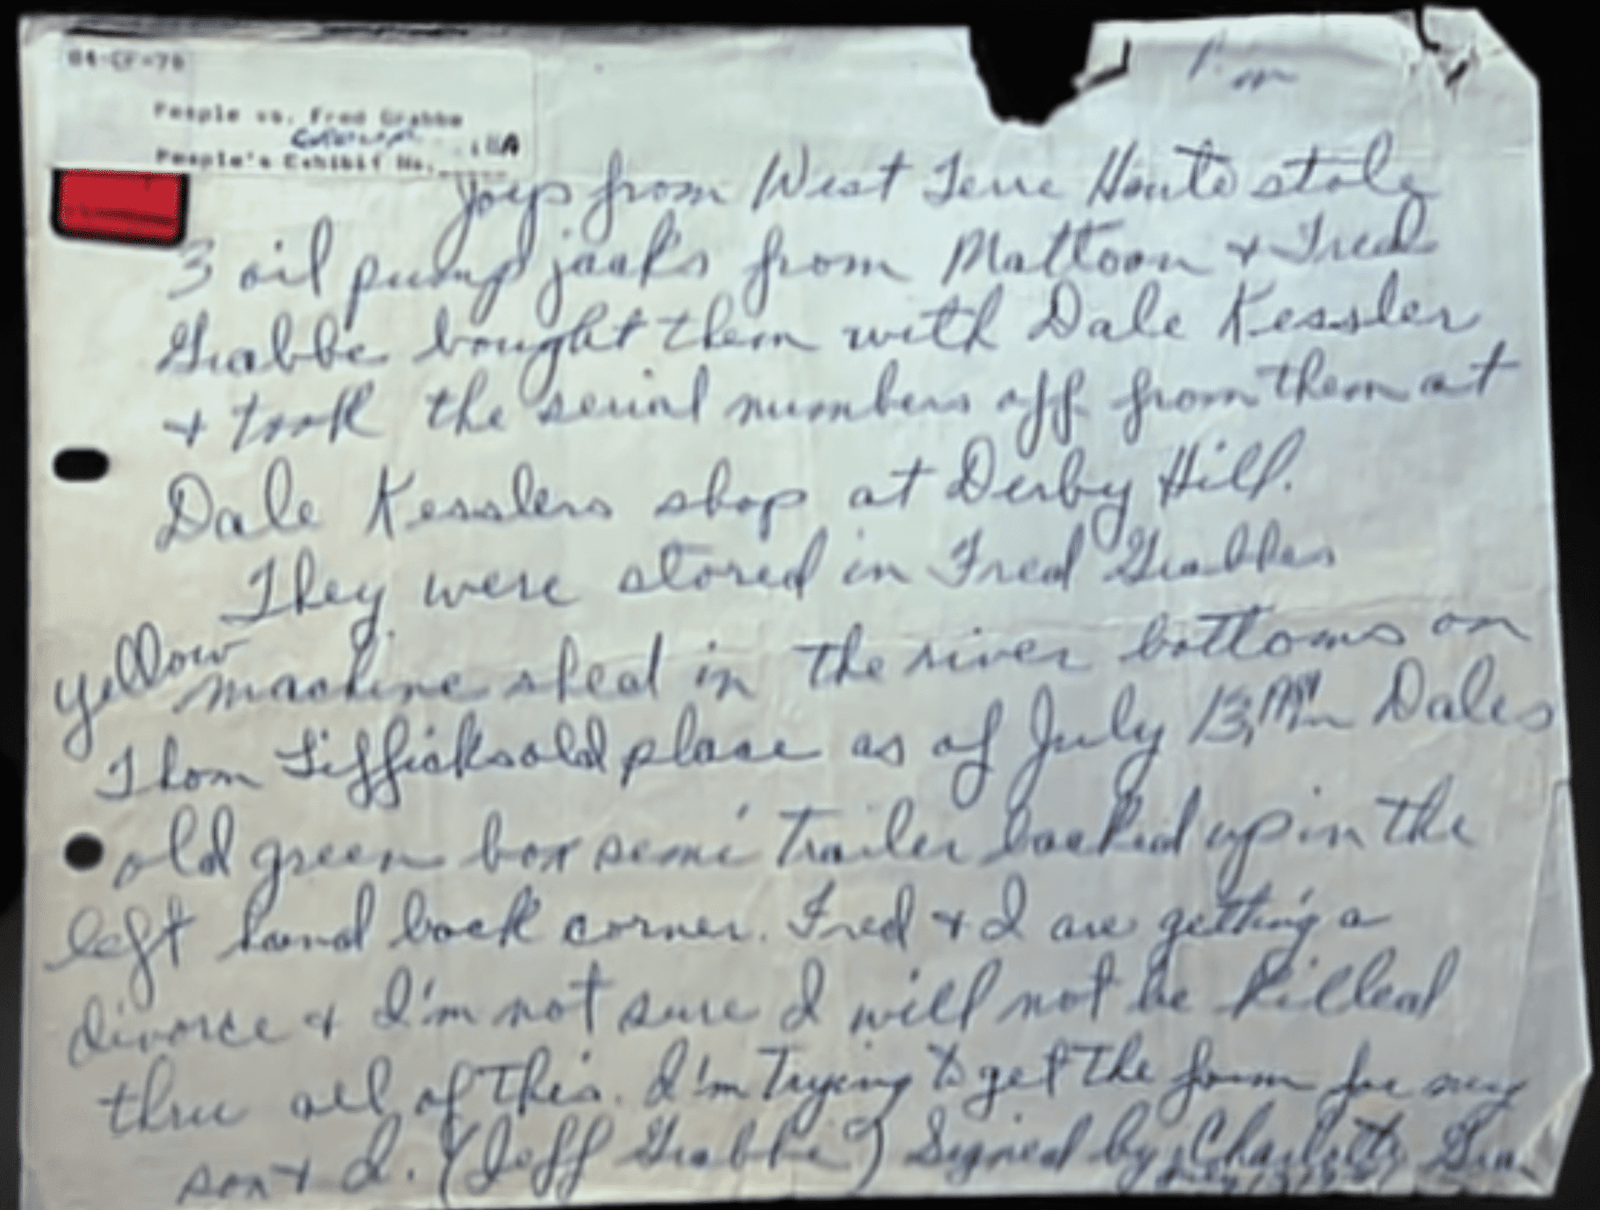 84-CF-78
People vs. Fred Grabbe
GROUP
People's Exhibit No.
from West Terre Haute stole
3 oil pump jacks from Mattoon & Fred
Grabbe bought them with Dale Kessler
& took the serial numbers off from them at
Dale Kesslers shop at Derby Hill.
They were stored in Fred Grabbes
yellow machine shed in the river bottoms on
Thom Tifficks old place as of July 13, in Dales
old green box semi trailer backed up in the
left hand back corner. Fred & I are getting a
divorce & I'm not sure I will not be killed
thru all of this. I'm trying to get the farm for my
son & I. (Jeff Grabbe) Signed by Charlotte Gra